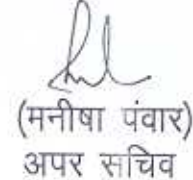 (मनीषा पंवार)
अपर सचिव